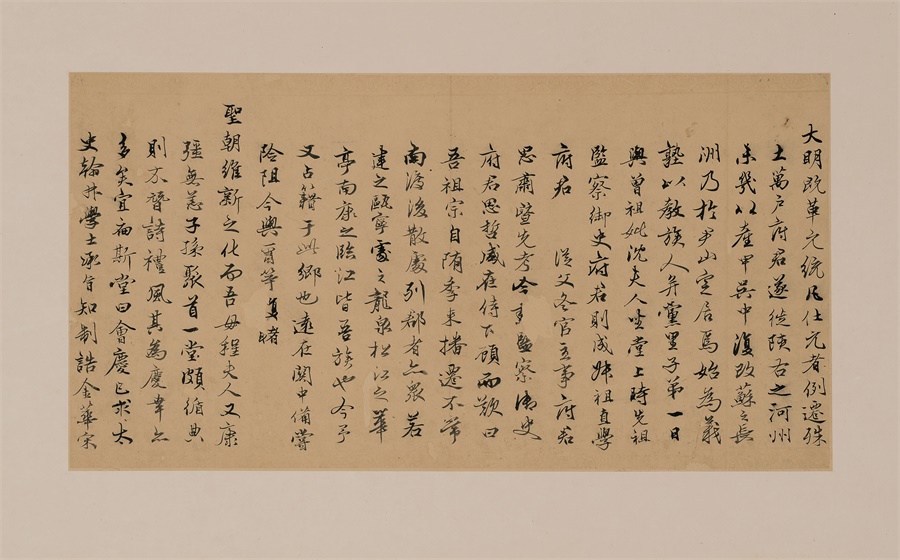 大明既革元統凡仕元者例遷殊
土萬戶府君遂徙陝右之河州
未幾以產甲吳中復改蘇之長
洲乃於尹山定居焉始為義
塾以教族人并黨里子弟一日
與曾祖妣沈夫人坐堂上時先祖
監察御史府君則成姊祖直學
府君 從父冬官主事府君
思肅暨先考今事監察御史
府君思哲咸在侍下顧而歎曰
吾祖宗自隋季來播遷不常
南渡後散處列郡者亦眾若
建之甌寧處之龍泉松江之華
亭南康之臨江皆吾族也今予
又占籍于此鄉也遠在閩中備嘗
險阻今與爾等真
聖朝維新之化而吾母程夫人又康
強無恙子孫聚首一堂頗循典
則亦晉詩禮風其為慶幸亦
多矣宜扁斯堂曰會慶已求太
史翰林學士承旨知制誥金華宋